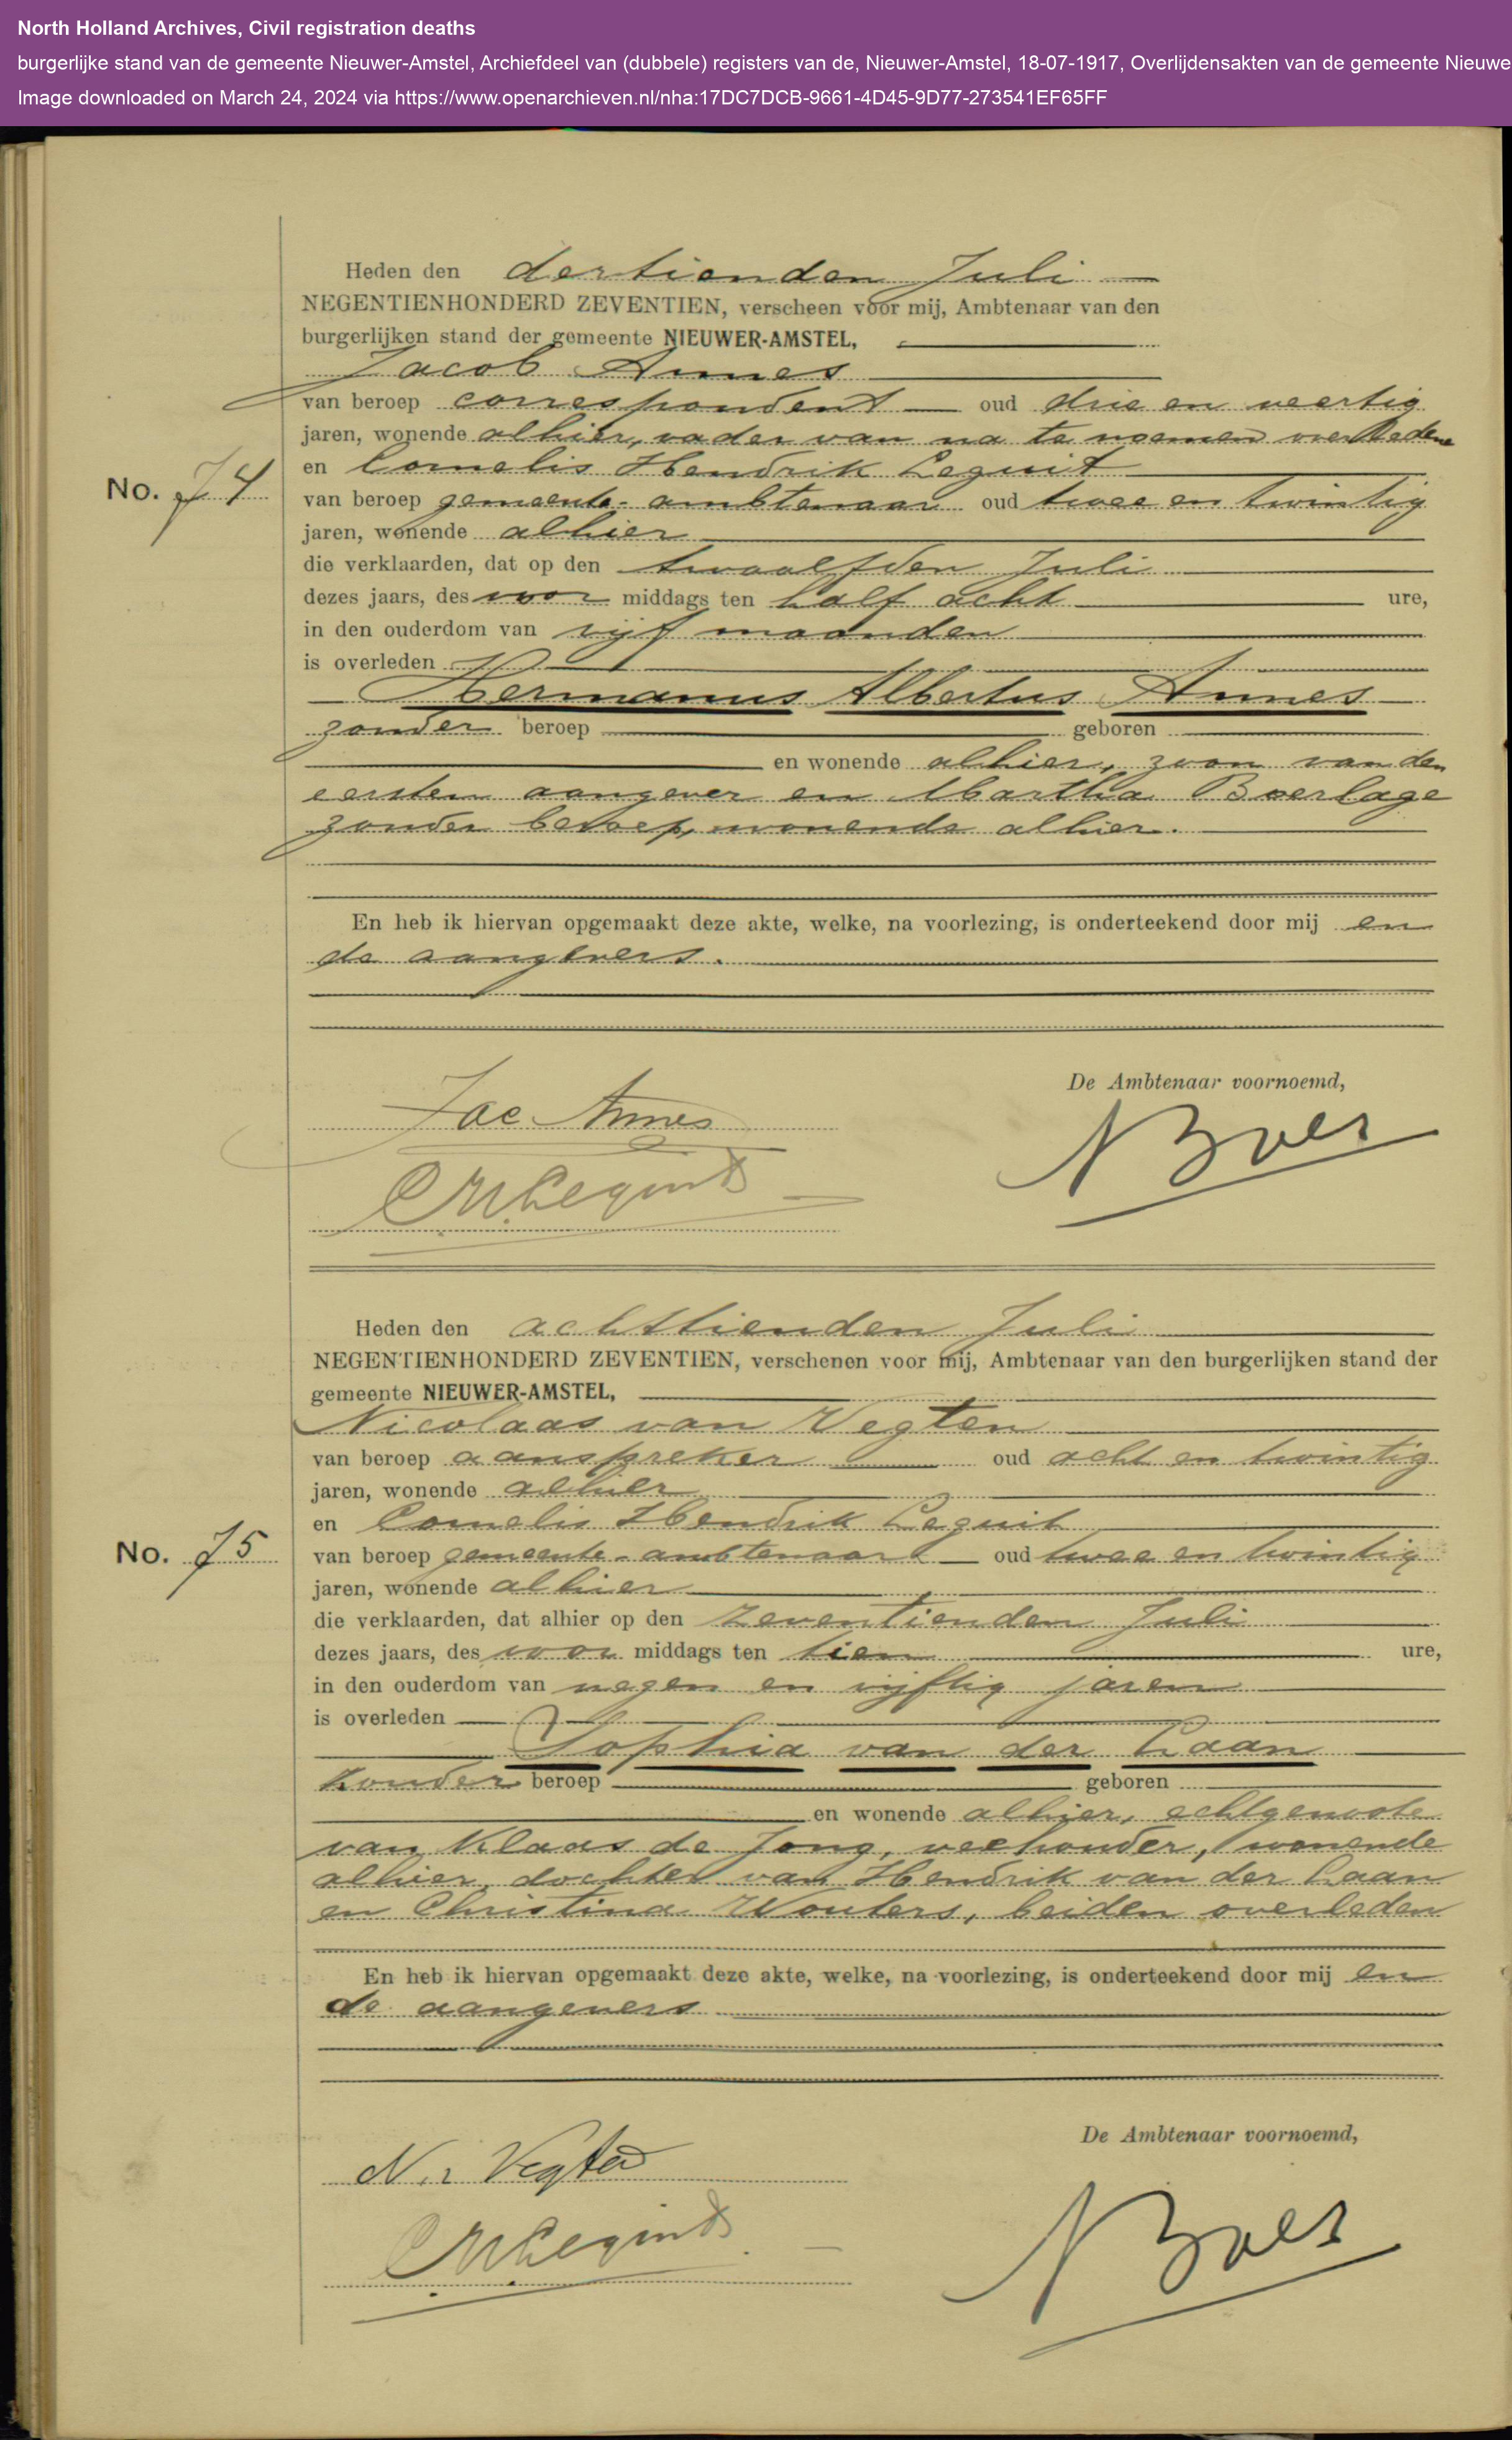 North Holland Archives, Civil registration deaths
burgerlijke stand van de gemeente Nieuwer-Amstel, Archiefdeel van (dubbele) registers van de, Nieuwer-Amstel, 18-07-1917, Overlijdensakten van de gemeente Nieuwe
Image downloaded on March 24, 2024 via https://www.openarchieven.nl/nha:17DC7DCB-9661-4D45-9D77-273541EF65FF
Heden den dertienden Juli
NEGENTIENHONDERD ZEVENTIEN, verscheen voor mij, Ambtenaar van den
burgerlijken stand der gemeente NIEUWER-AMSTEL,
Jacob Annes
van beroep correspondent oud drie en veertig
jaren, wonende alhier, vader van na te noemen overledene
No. 74
en Cornelis Hendrik Leguit
van beroep gemeente-ambtenaar oud twee en twintig
jaren, wonende alhier
die verklaarden, dat op den twaalfden Juli
dezes jaars, des voor middags ten half acht ure,
in den ouderdom van vijf maanden
is overleden
Hermanus Albertus Annes
zonder beroep geboren
en wonende alhier, zoon van den
eersten aangever en Martha Boerlage
zonder beroep, wonende alhier.
En heb ik hiervan opgemaakt deze akte, welke, na voorlezing, is onderteekend door mij en
de aangevers.
De Ambtenaar voornoemd,
Jac Annes
N Boes
CHLeguit
Heden den achttienden Juli
NEGENTIENHONDERD ZEVENTIEN, verschenen voor mij, Ambtenaar van den burgerlijken stand der
gemeente NIEUWER-AMSTEL,
Nicolaas van Vegten
van beroep aanspreker oud acht en twintig
jaren, wonende alhier
en Cornelis Hendrik Leguit
No. 75
van beroep gemeente-ambtenaar oud twee en twintig
jaren, wonende alhier
die verklaarden, dat alhier op den zeventienden Juli
dezes jaars, des voor middags ten tien ure,
in den ouderdom van negen en vijftig jaren
is overleden
Sophia van der Laan
zonder beroep geboren
en wonende alhier, echtgenoote
van Klaas de Jong, veehouder, wonende
alhier, dochter van Hendrik van der Laan
en Christina Wouters, beiden overleden
En heb ik hiervan opgemaakt deze akte, welke, na voorlezing, is onderteekend door mij en
de aangevers
De Ambtenaar voornoemd,
N. v Vegten
N Boes
CHLeguit